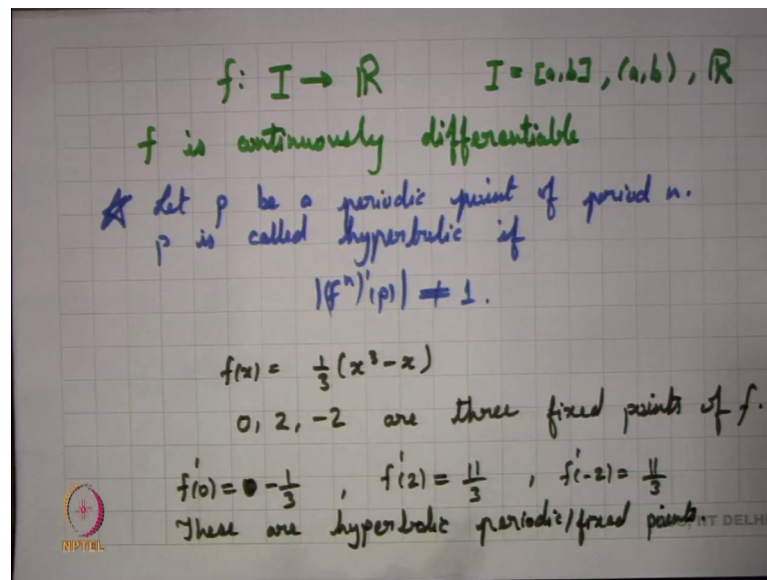 f: I → ℝ    I = [a,b], (a,b), ℝ
f is continuously differentiable
☆ Let p be a periodic point of period n.
p is called hyperbolic if
|(fⁿ)'(p)| ≠ 1.
f(x) = 1/3 (x³ - x)
0, 2, -2 are three fixed points of f.
f'(0) = -1/3 , f'(2) = 11/3 , f'(-2) = 11/3
These are hyperbolic periodic/fixed points.
IIT DELHI
NPTEL